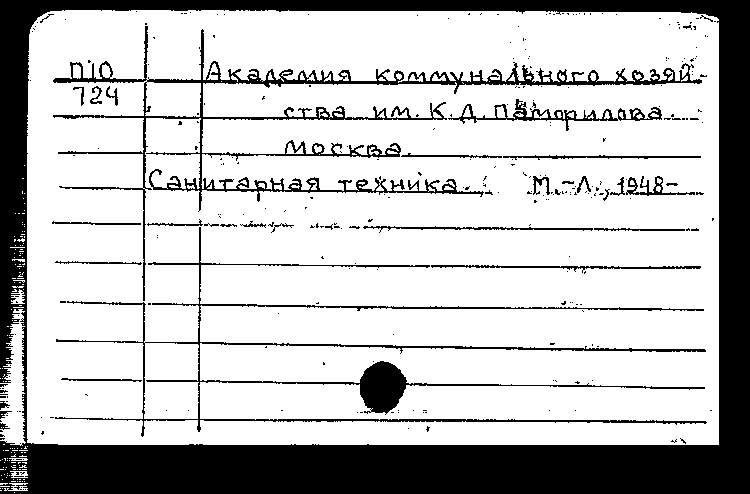 П10
724
Академия коммунального хозяй-
ства им. К.Д. Памфилова.
Москва.
Санитарная техника. М.-Л., 1948-